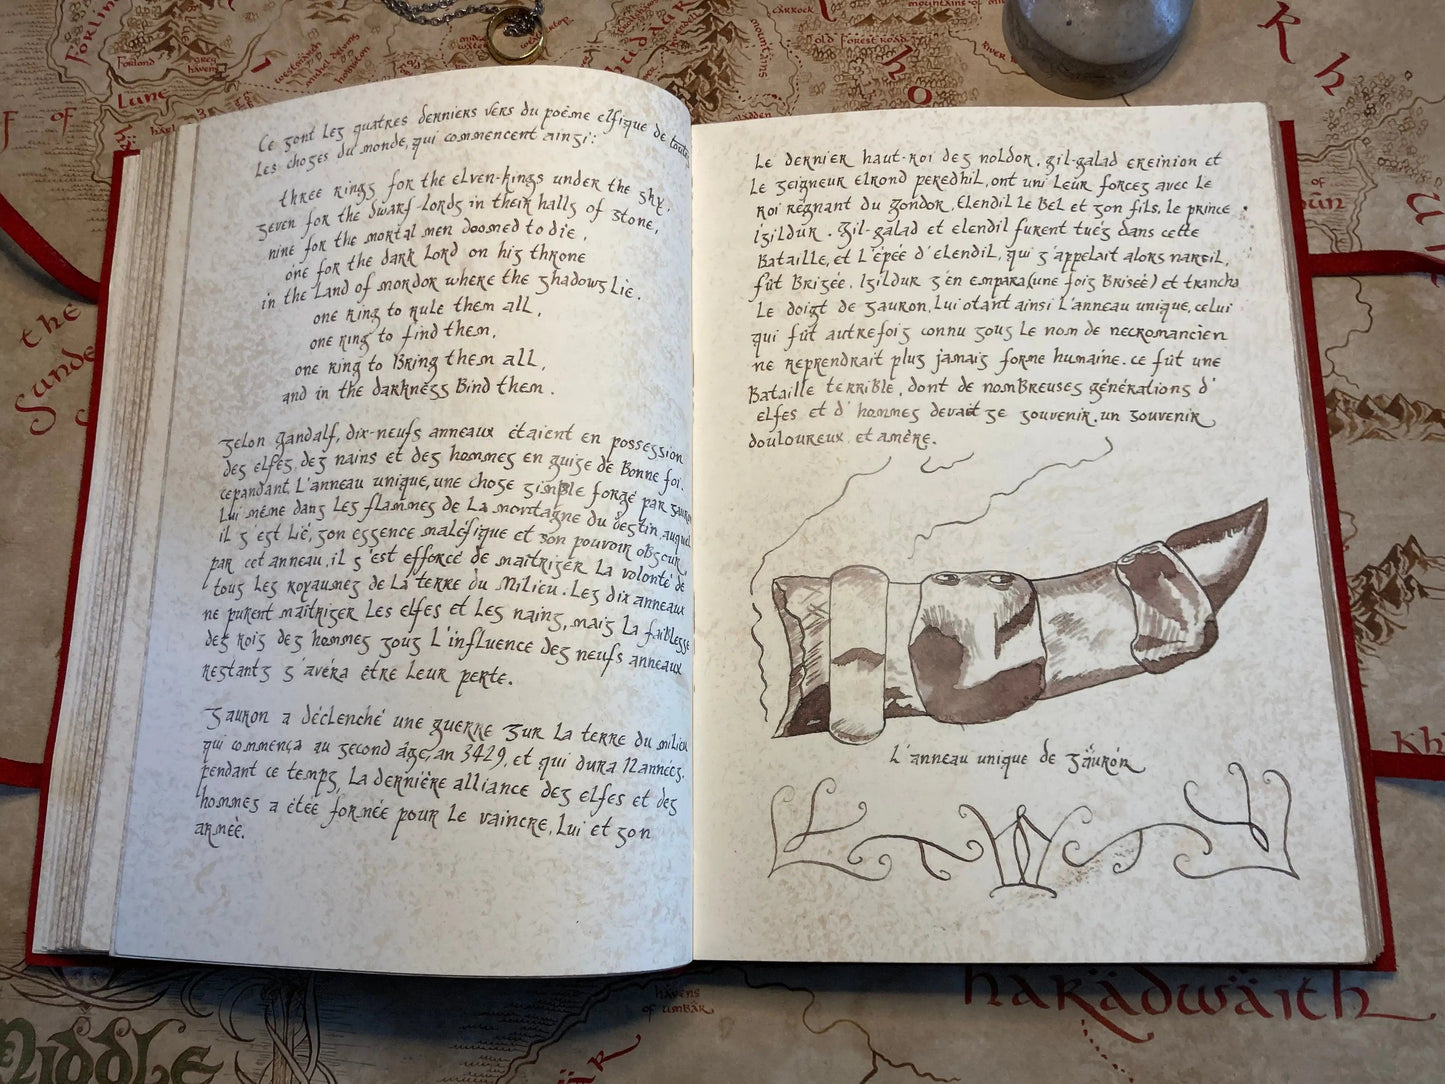 Ce sont les quatres derniers vers du poème elfique de toutes
les choses du monde, qui commencent ainsi:
three rings for the elven-kings under the sky,
seven for the dwarf-lords in their halls of stone,
nine for the mortal men doomed to die,
one for the dark lord on his throne
in the land of mordor where the shadows lie.
one ring to rule them all,
one ring to find them,
one ring to Bring them all,
and in the darkness Bind them.
selon gandalf, dix-neufs anneaux étaient en possession
des elfes, des nains et des hommes en guise de Bonne foi.
cependant, l'anneau unique, une chose simple forgé par sauron
lui même dans les flammes de la montagne du destin, auquel
il s'est lié, son essence maléfique et son pouvoir obscur,
par cet anneau, il s'est efforcé de maîtriser la volonté de
tous les royaumes de la terre du milieu. Les dix anneaux
ne purent maîtriser les elfes et les nains, mais la faiblesse
des rois des hommes sous l'influence des neufs anneaux
restants s'avéra être leur perte.
Sauron a déclenché une guerre sur la terre du milieu
qui commença au second âge, an 3429, et qui dura 12 années.
pendant ce temps, la dernière alliance des elfes et des
hommes a étée formée pour le vaincre, lui et son
armée.
Le dernier haut-roi des noldor, gil-galad ereinion et
le seigneur elrond peredhil, ont uni leur forces avec le
roi régnant du gondor, Elendil le Bel et son fils, le prince
isildur. Gil-galad et elendil furent tués dans cette
Bataille, et l'épée d'elendil, qui s'appelait alors narsil,
fût Brisée. Isildur s'en empara (une fois Brisée) et trancha
le doigt de sauron, lui otant ainsi l'anneau unique, celui
qui fût autrefois connu sous le nom de necromancien
ne reprendrait plus jamais forme humaine. ce fût une
Bataille terrible, dont de nombreuses générations d'
elfes et d'hommes devait se souvenir. un souvenir
douloureux et amère.
L'anneau unique de saurón
Forlond
Grey havens
Lune
of
old Forest road
Carrock
mountains of
the
Sunde
havens
of umbar
haradwaith
Middle
Kh